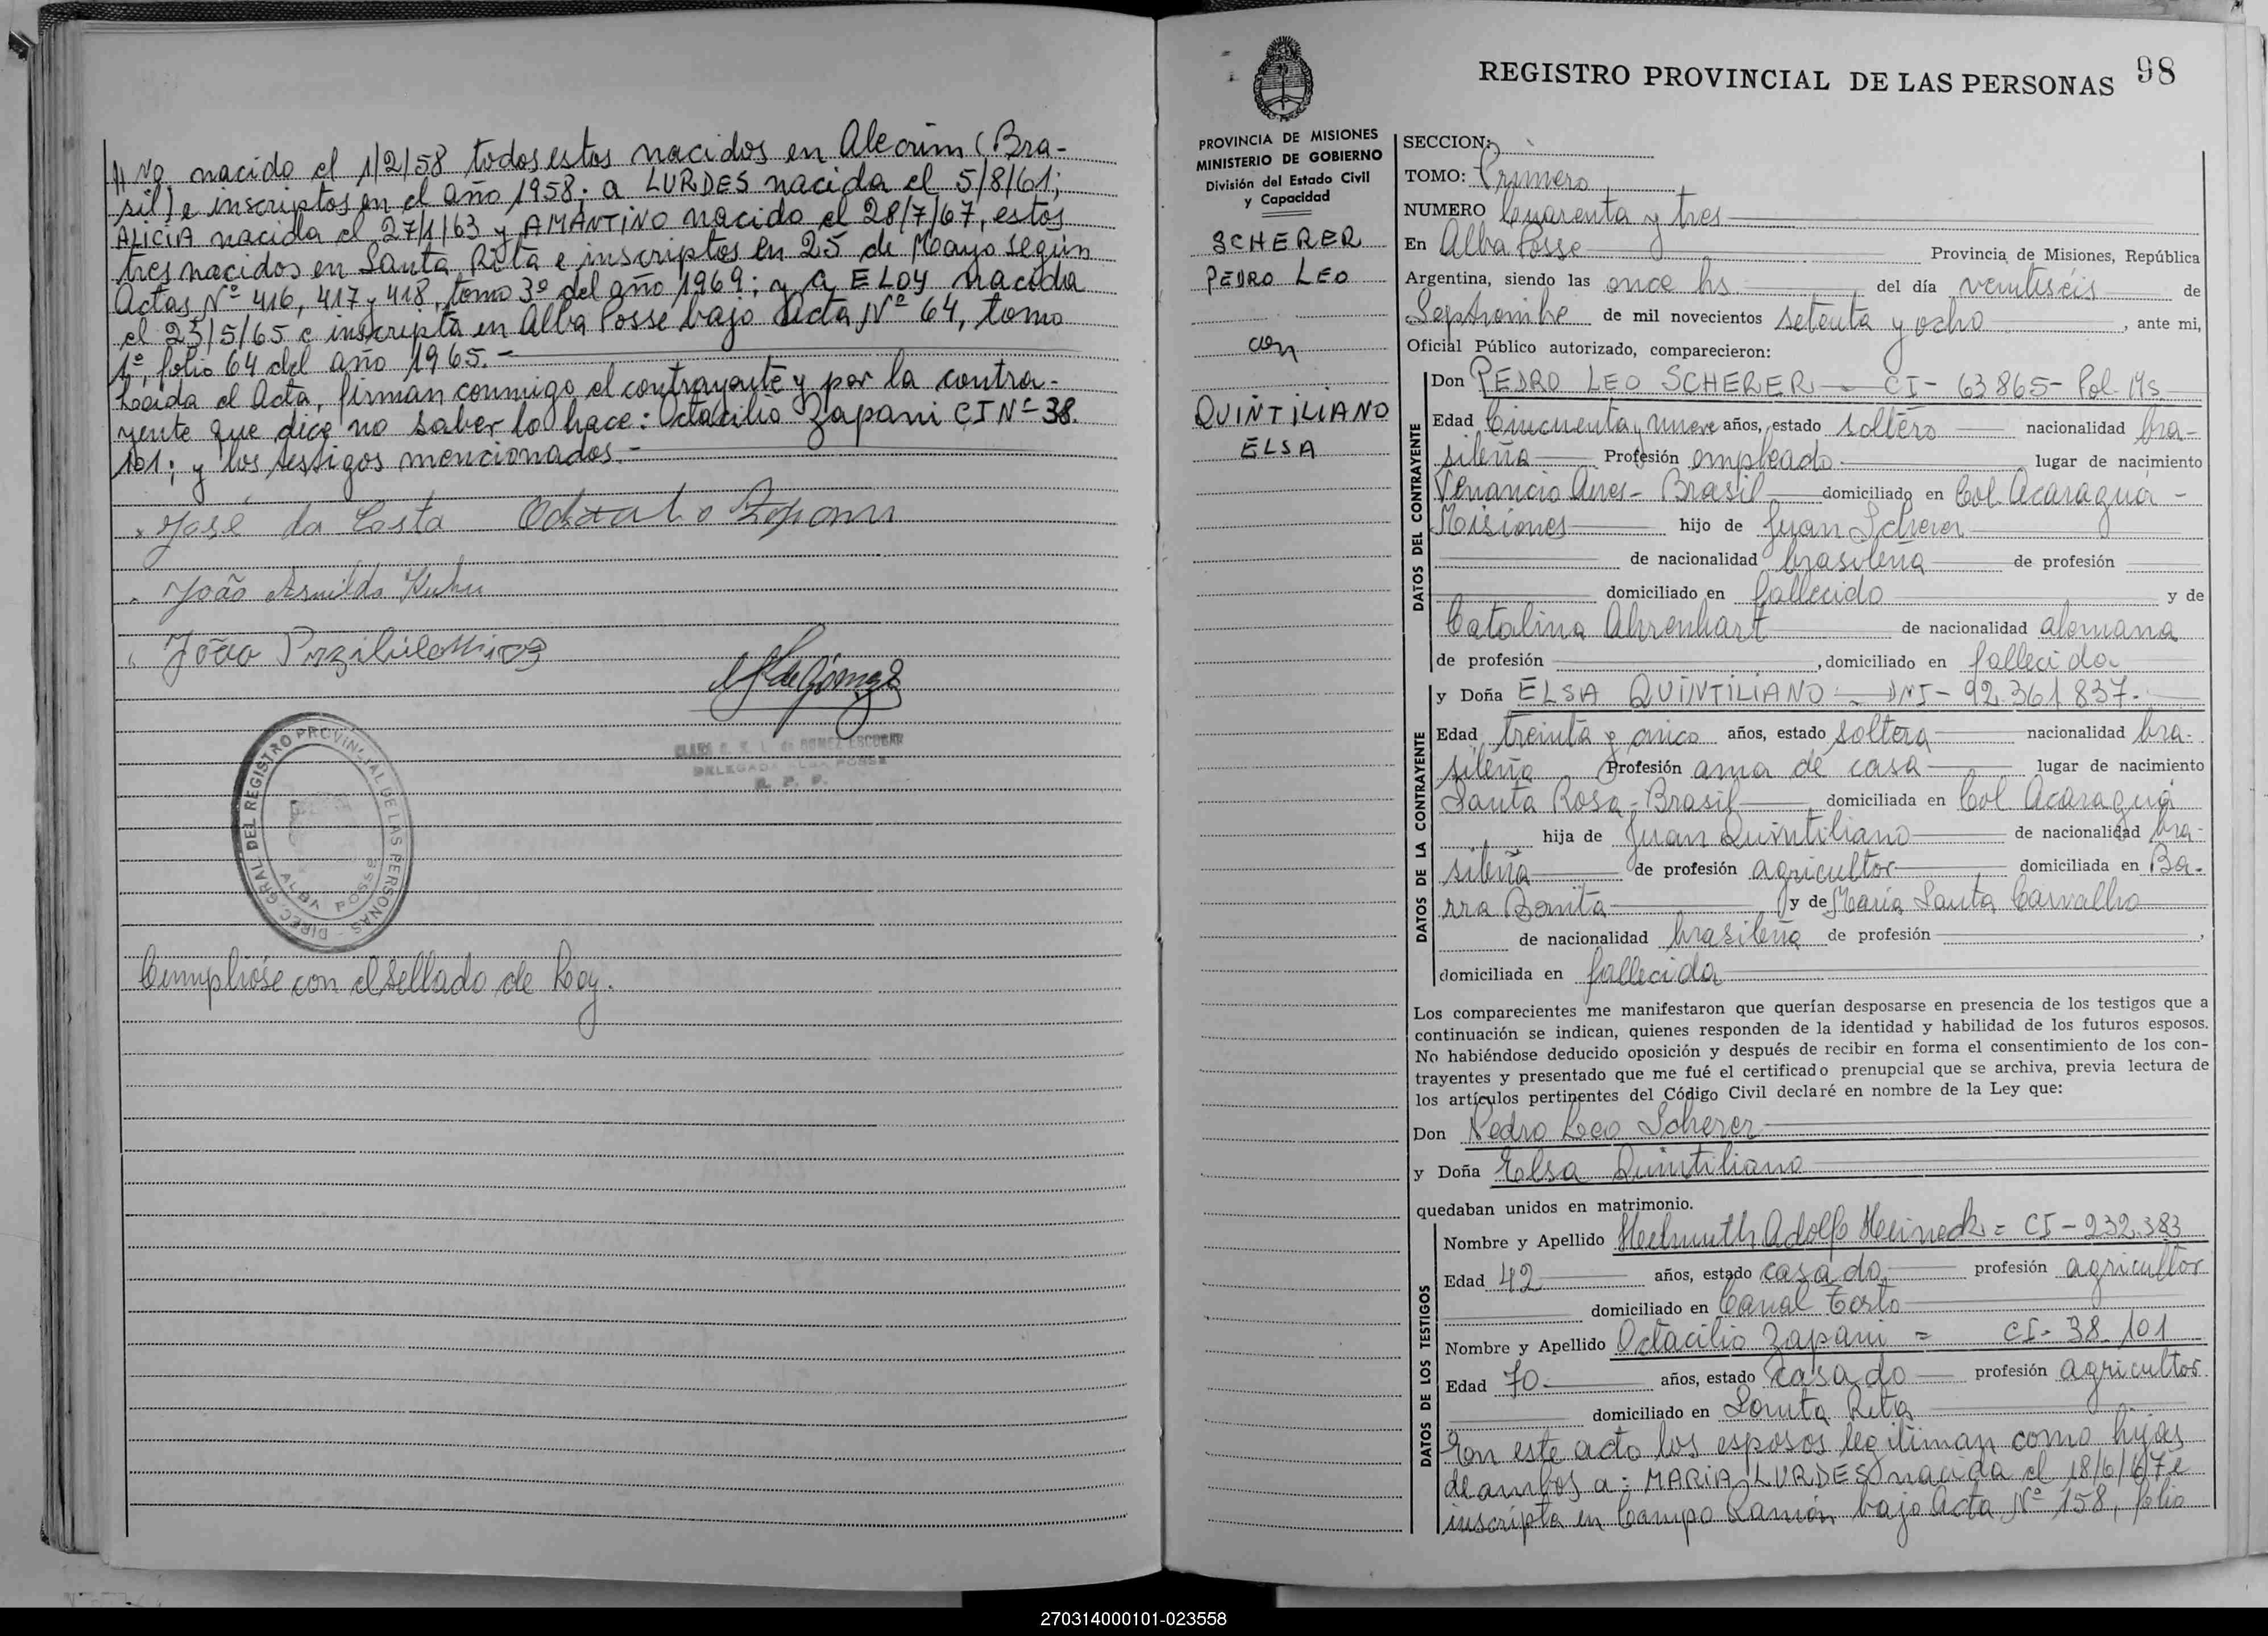 nacido el 1/2/58 todos estos nacidos en Alecrim (Bra-
sil) e inscriptos en el año 1958; a LURDES nacida el 5/8/61;
ALICIA nacida el 27/1/63 y AMANTINO nacido el 28/7/67, estos
tres nacidos en Santa Rita e inscriptos en 25 de Mayo según
Actas Nº 416, 417 y 418, tomo 3º del año 1969; y a ELOY nacida
el 25/5/65 e inscripta en Alba Posse bajo Acta Nº 64, tomo
1º, folio 64 del año 1965.-
Leída el Acta, firman conmigo el contrayente y por la contra-
yente que dice no saber lo hace: Octacilio Zapani CI Nº 38.
101; y los testigos mencionados.-
José da Costa
João Arnildo Kuhn
João
DIREC. GRAL. DEL REGISTRO PROVINCIAL DE LAS PERSONAS -
ALBA POSSE
de GOMEZ ESCOBAR
DELEGADA ALBA POSSE
R. P. P.
Cumplióse con el sellado de Ley.
REGISTRO PROVINCIAL DE LAS PERSONAS 98
PROVINCIA DE MISIONES
MINISTERIO DE GOBIERNO
División del Estado Civil
y Capacidad
SCHERER
PEDRO LEO
con
QUINTILIANO
ELSA
SECCION:
TOMO: Primero
NUMERO Cuarenta y tres
En Alba Posse Provincia de Misiones, República
Argentina, siendo las once hs. del día veintiséis de
Septiembre de mil novecientos setenta y ocho, ante mi,
Oficial Público autorizado, comparecieron:
DATOS DEL CONTRAYENTE
Don PEDRO LEO SCHERER - CI - 63865 - Pol. Ms
Edad Cincuenta y nueve años, estado soltero nacionalidad bra-
sileña Profesión empleado lugar de nacimiento
Venancio Aires - Brasil domiciliado en Col. Acaraguá -
Misiones hijo de Juan Scherer
de nacionalidad brasileña de profesión
domiciliado en fallecido y de
Catalina Ahrenhart de nacionalidad alemana
de profesión , domiciliado en fallecida
DATOS DE LA CONTRAYENTE
y Doña ELSA QUINTILIANO - DNI - 92.361.837.-
Edad treinta y cinco años, estado soltera nacionalidad bra-
sileña Profesión ama de casa lugar de nacimiento
Santa Rosa - Brasil domiciliada en Col. Acaraguá
hija de Juan Quintiliano de nacionalidad bra-
sileña de profesión agricultor domiciliada en Ba-
rra Bonita y de María Santa Carvalho
de nacionalidad brasileña de profesión ,
domiciliada en fallecida
Los comparecientes me manifestaron que querían desposarse en presencia de los testigos que a
continuación se indican, quienes responden de la identidad y habilidad de los futuros esposos.
No habiéndose deducido oposición y después de recibir en forma el consentimiento de los con-
trayentes y presentado que me fué el certificado prenupcial que se archiva, previa lectura de
los artículos pertinentes del Código Civil declaré en nombre de la Ley que:
Don Pedro Leo Scherer
y Doña Elsa Quintiliano
quedaban unidos en matrimonio.
DATOS DE LOS TESTIGOS
Nombre y Apellido Helmuth Adolfo Heineck = CI - 232.383
Edad 42 años, estado casado profesión agricultor
domiciliado en Canal Torto
Nombre y Apellido Octacilio Zapani = CI - 38.101
Edad 70 años, estado casado profesión agricultor
domiciliado en Santa Rita
En este acto los esposos legitiman como hijas
de ambos a: MARIA LURDES nacida el 18/6/67 e
inscripta en Campo Ramón bajo Acta Nº 158, folio
270314000101-023558